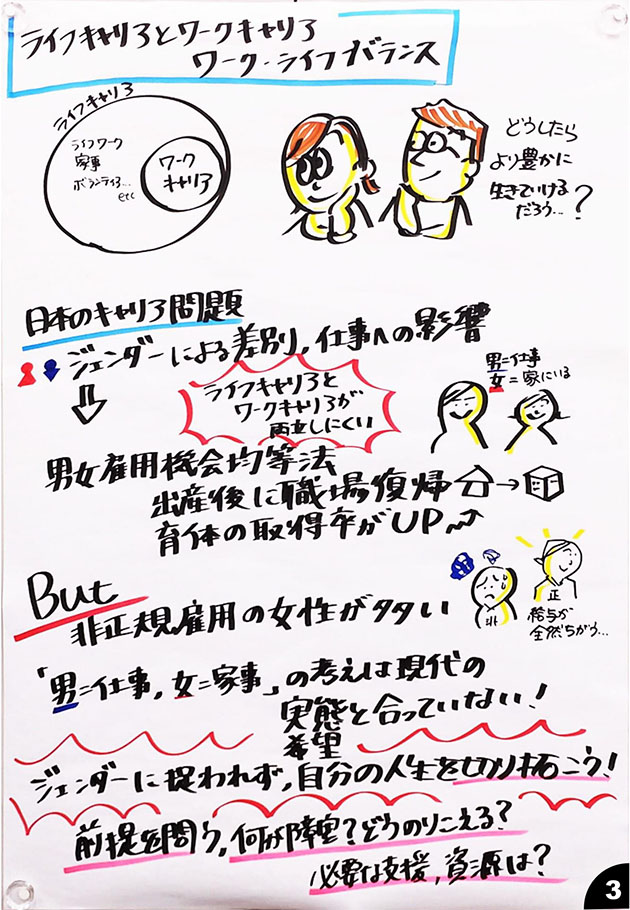 ライフキャリアとワークキャリア
ワーク・ライフバランス
ライフキャリア
ライフワーク
家事
ボランティア…
etc
ワーク
キャリア
どうしたら
より豊かに
生きていける
だろう…?
日本のキャリア問題
ジェンダーによる差別,仕事への影響
ライフキャリアと
ワークキャリアが
両立しにくい
男=仕事
女=家にいる
男女雇用機会均等法
出産後に職場復帰
育休の取得率がUP
But
非正規雇用の女性が多い
非
正
給与が
全然ちがう…
「男=仕事,女=家事」の考えは現代の
実態と合っていない!
希望
ジェンダーに捉われず,自分の人生を切り拓こう!
前提を問う,何が障害?どうのりこえる?
必要な支援,資源は?
3